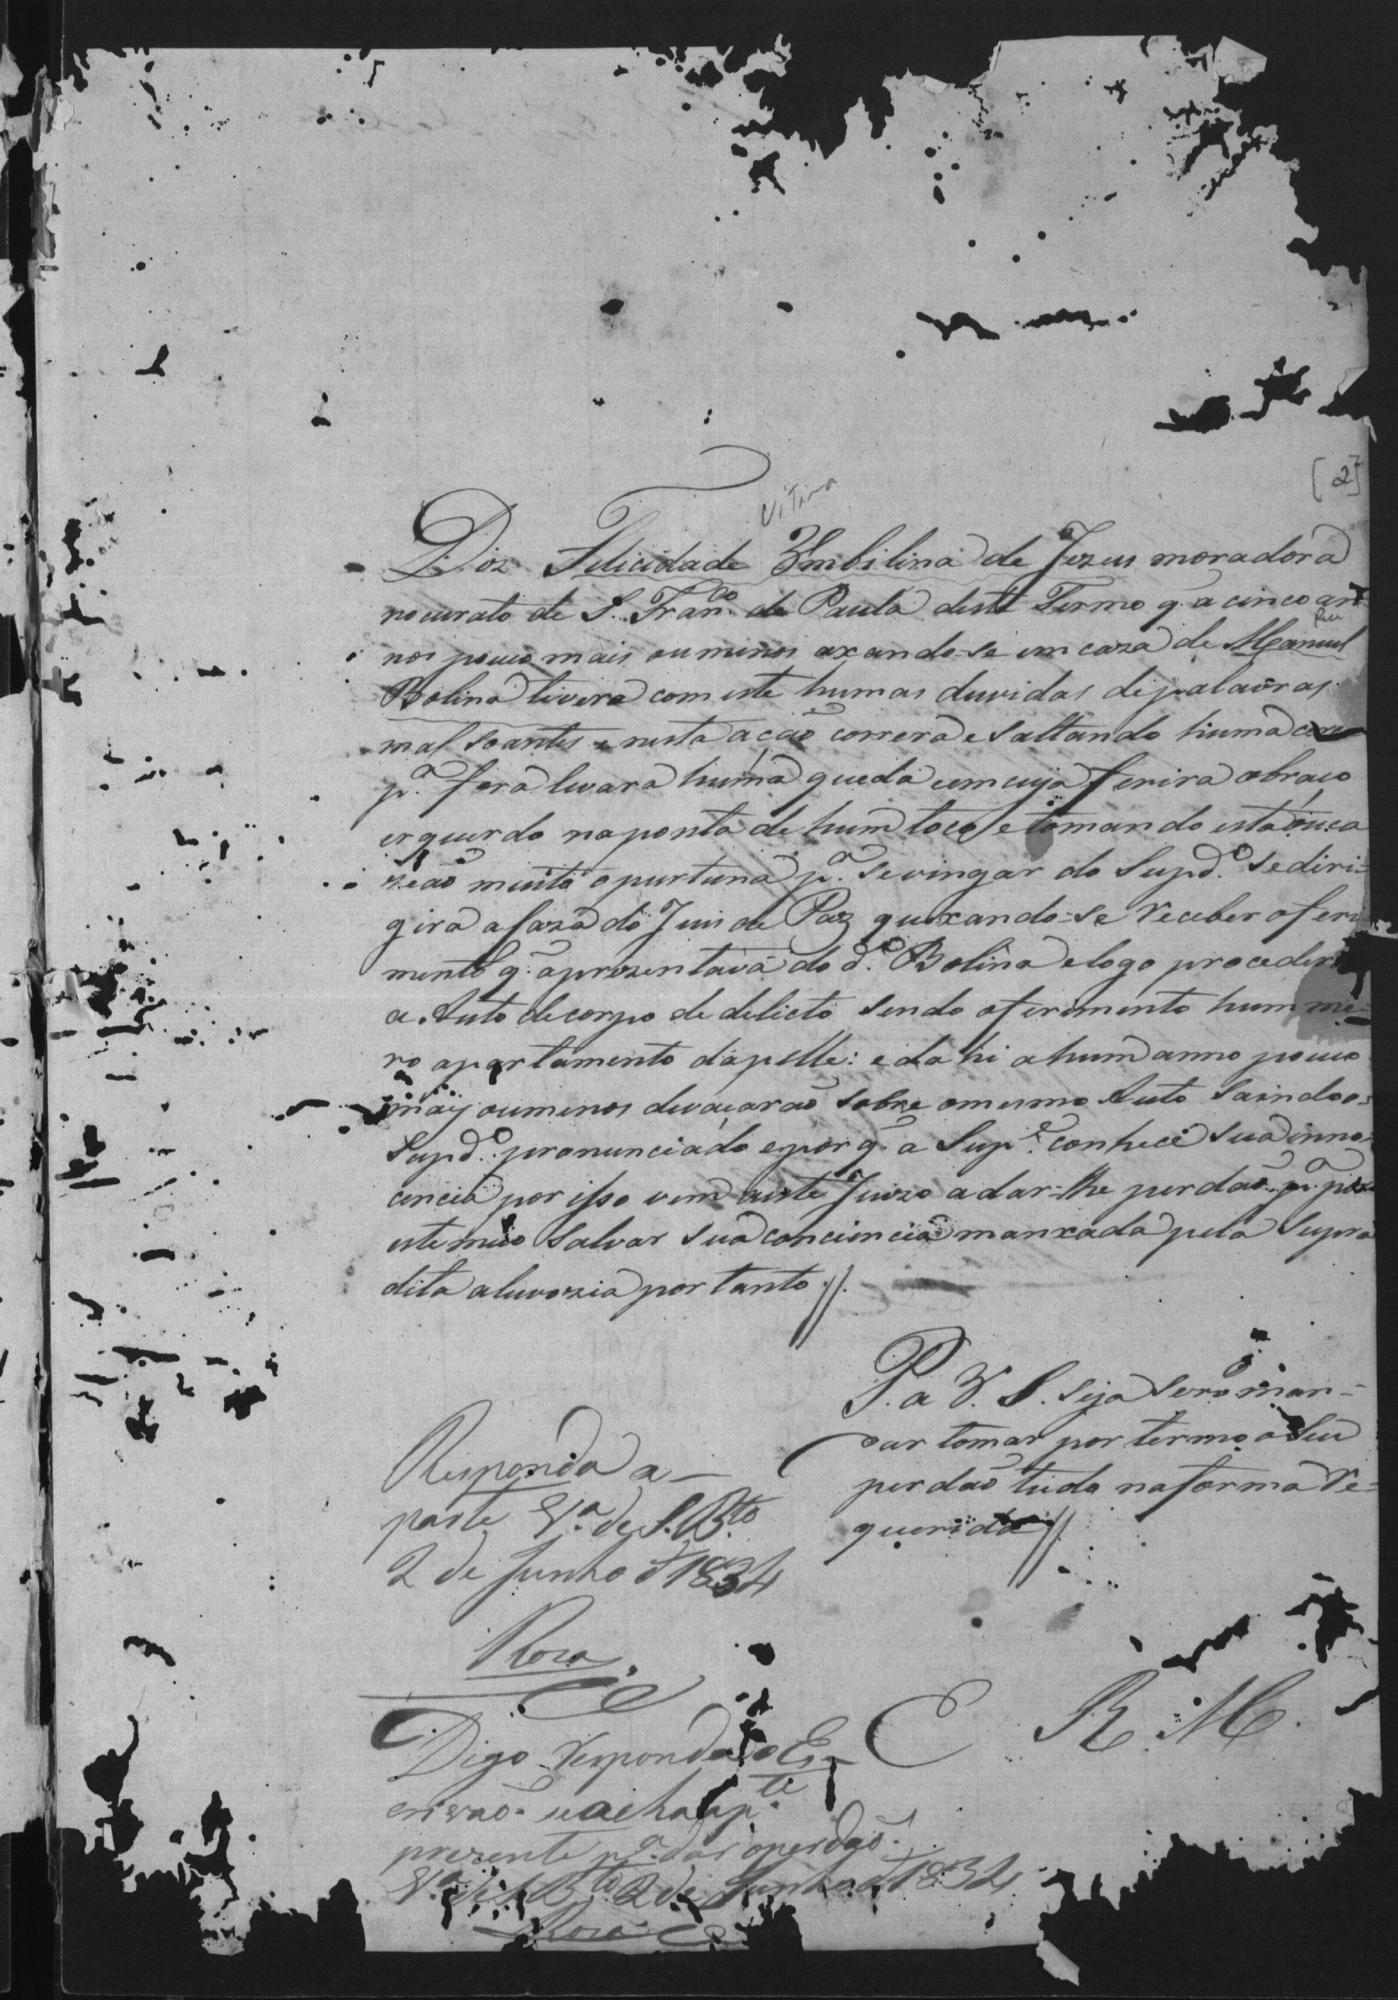 [2]
Vitima
Diz Felicidade Umbilina de Jezus moradora
no curato de S. Fran.co de Paula deste Termo q. a cinco an-
Reu
nos pouco mais ou minos axando-se em caza de Manuel
Bolina tivera com este humas duvidas de palavras
mal soantes e nesta ação correra e saltando huma
p.a fora livara huma queda em cuja ferira o braço
esquerdo na ponta de hum toco e tomando esta ouca
zeaõ muito opurtuna p.a se vingar do Sup.do se diri-
gira a caza do Juis de Paz queixando-se receber o feri-
mento q. aprezentava do d.o Bolina e logo proceder
a Auto de corpo de delicto sendo o ferimento hum me-
ro apartamento da pelle: e da hi a hum anno pouco
mais ou menos devaçaraõ sobre o mesmo Auto saindo o
Sup.do pronunciado e por q. a Sup.e conhece sua inno-
cencia por isso vem neste Juizo a dar-lhe perdaõ p.a por
este meio salvar sua conciencia manxada pela supra
dita aleivozia por tanto //.
P. a V. S. seja servo man-
dar tomar por termo o seu
perdaõ tudo na forma re-
querida //
Responda a
parte V.a de S. B.to
2 de Junho d 1834
Roza
E R M.
Digo responda o Es-
crivaõ se acha a p.te
prezente p.a dar o perdaõ.
V.a de S. B.to 2 de Junho d 1834
Roza